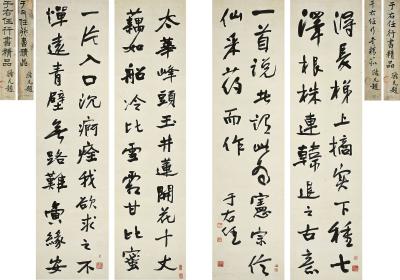 太華峰頭玉井蓮開花十丈
藕如船冷比雪霜甘比蜜
一片入口沉痾痊我欲求之不
憚遠青壁無路難夤緣安
得長梯上摘實下種七
澤根株連韓退之古意
一首說此為憲宗信
仙采药而作
于右任
于右任行書精品
于右任行書精品
于右任行書精品